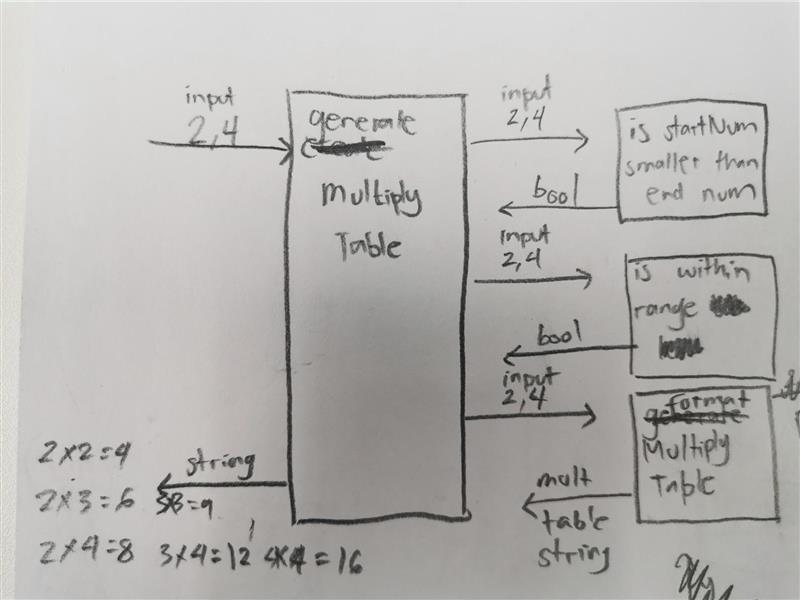 input
2,4
generate
Multiply
Table
input
2,4
is startNum
smaller than
end num
bool
input
2,4
is within
range
bool
input
2,4
format
generate
Multiply
Table
mult
table
string
string
2×2=4
2×3=6 3×3=9
2×4=8 3×4=12 4×4=16